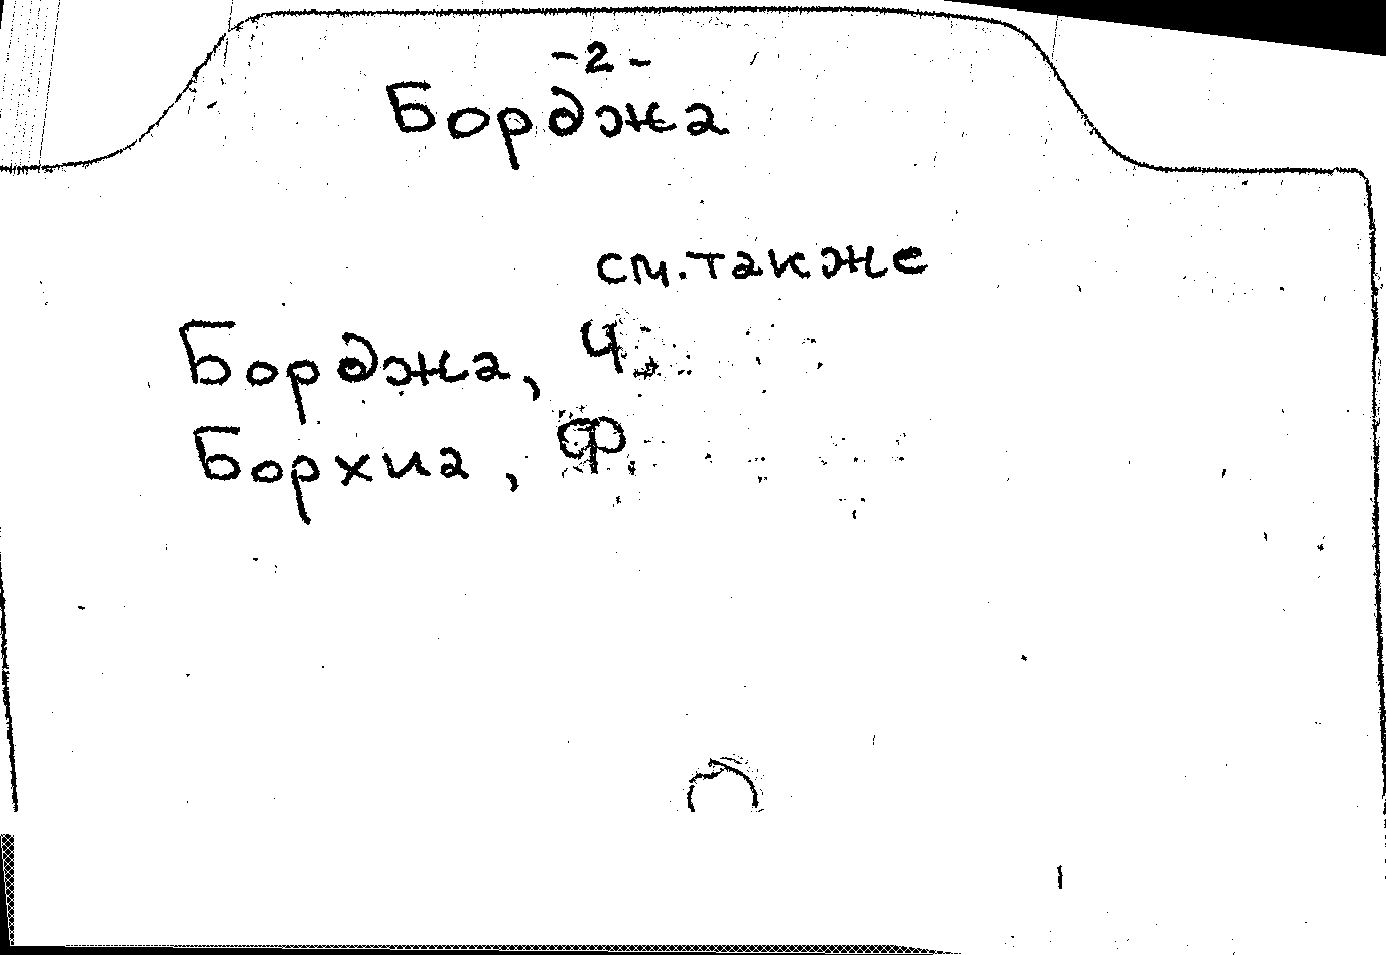 -2-
Борджа
см. также
Борджа, Ч.
Борхиа, Ф.